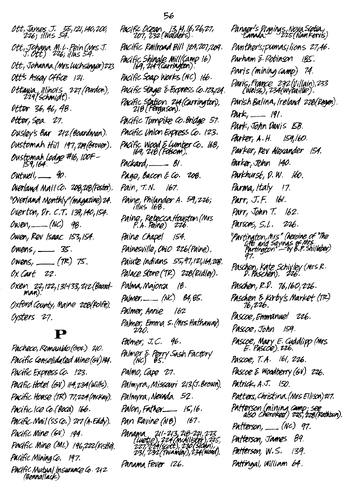 56
Ott, James J. 55, 121, 140, 201,
226; illus 54.
Ott, Johanna M.L. Pein (Mrs J.
J. Ott) 226; illus 54.
Ott, Johanna (Mrs Luchsinger) 223
Ott's Assay Office 121.
Ottawa, Illinois 227 (Purdon),
Otter 36, 46, 48.
Otter, Sea 27.
Ousley's Bar 212 (Boardman).
Oustomah Hill
Oustomah Lodge #16, IOOF -
Outwell, 90.
Overland Mail Co. 208, 218 (Foster).
"Overland Monthly" (magazine) 24.
Overton, Dr. C.T. 138, 140, 154.
Owen, ____ (NC) 98.
Owen, Rev Isaac 153, 154.
Owens, ____ 35.
Owens, ____ (TR) 75.
Ox Cart 22.
Oxen
Oxford County, Maine 228 (Rolfe).
Oysters 27.
P
Pacheco, Romualdo (Gov.) 210.
Pacific Consolidated Mine (GV) 184.
Pacific Express Co. 123.
Pacific Hotel (GV) 94, 234 (Wilfs).
Pacific House (TR) 77, 224 (McKay)
Pacific Ice Co (Boca) 166.
Pacific Mail (SS Co.) 217 (A. Eddy).
Pacific Mine (GV) 194.
Pacific Mine (NC)
Pacific Mining Co. 197.
Pacific Mutual Insurance Co. 212
Pacific Ocean 13, 14, 16, 26, 27,
Pacific Railroad Bill 169, 207, 209.
Pacific Shingle Mill (Camp 16)
169, 214 (Carrington).
Pacific Soap Works (NC) 166.
Pacific Stage & Express Co. 123, 124.
Pacific Station 214 (Carrington),
218 (Ferguson).
Pacific Turnpike Co. Bridge 57.
Pacific Union Express Co. 123.
Pacific Wood & Lumber Co. 168,
169, 218 (Folsom).
Packard, ____ 81.
Pago, Bacon & Co. 208.
Pain, T.N. 167.
Paine, Philander A. 59, 226;
illus 168.
Paine, Rebecca Houston (Mrs
P.A. Paine) 226.
Paine Chapel 154.
Painesville, Ohio 226 (Paine).
Paiute Indians 55, 97, 121, 169, 208
Palace Store (TR) 228 (Rudin).
Palma, Majorca 18.
Palmer, ____ (NC) 84, 85.
Palmer, Annie 162
Palmer, Emma S. (Mrs Hathaway)
220.
Palmer, J.C. 96.
Palmer & Perry Sash Factory
(NC) 85.
Palmo, Cape 27.
Palmyra, Missouri 213 (C. Brown).
Palmyra, Nevada 52.
Palon, Father ____ 15, 16.
Pan Ravine (NB) 167.
Panama 211-213, 216-221, 223
Panama Fever 126.
Pangor's Pignings, Nova Scotia,
Canada
Panthers; pumas; lions 27, 46.
Parham & Robinson 185.
Paris (mining camp) 74.
Paris, France
Parish Balina, Ireland 228 (Fagan).
Park, ____ 191.
Park, John Davis 58.
Parker, A.H. 159, 160.
Parker, Rev Alexander 154.
Parker, John 140.
Parkhurst, D.W. 160.
Parma, Italy 17.
Parr, J.F. 161.
Parr, John T. 162.
Parsons, S.L. 226.
"Partington, Mrs" (heroine of "The
Life and Sayings of Mrs
Partington" by B.P. Shillaber)
97.
Paschen, Kate Schirley (Mrs R.
D. Paschen) 226.
Paschen, R.D. 76, 160, 226.
Paschen & Kirby's Market (TR)
76, 226.
Pascoe, Emmanuel 226.
Pascoe, John 159.
Pascoe, Mary E. Cuddihy (Mrs
E. Pascoe) 226.
Pascoe, T.A. 161, 226.
Pascoe & Woodberry (GV) 226.
Patrick, A.J. 150.
Patters, Christina (Mrs Ellison) 217.
Patterson (mining camp; see
also Cherokee)
Patterson, ____ (NC) 97.
Patterson, James 89.
Patterson, W.S. 139.
Pattingal, William 64.